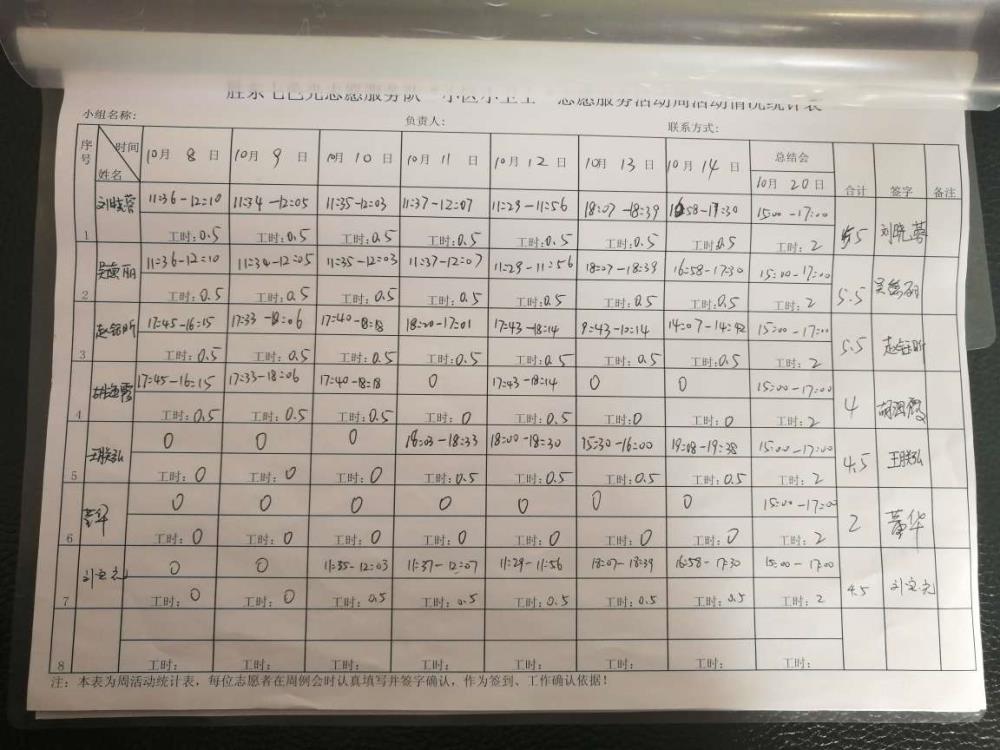 胜东七色光志愿服务队“小区小卫士”志愿服务活动周活动情况统计表
小组名称： 负责人： 联系方式：
序号 时间 姓名 10月 8 日 10月 9 日 10月 10 日 10月 11 日 10月 12 日 10月 13 日 10月 14 日 总结会 10月 20 日 合计 签字 备注
刘晓蓉 11:36-12:10 11:34-12:05 11:35-12:03 11:37-12:07 11:29-11:56 18:07-18:39 16:58-17:30 15:00-17:00
1 工时:0.5 工时:0.5 工时:0.5 工时:0.5 工时:0.5 工时:0.5 工时:0.5 工时: 2 5.5 刘晓蓉
11:36-12:10 11:34-12:05 11:35-12:03 11:37-12:07 11:29-11:56 18:07-18:39 16:58-17:30 15:00-17:00
2 工时:0.5 工时:0.5 工时:0.5 工时:0.5 工时:0.5 工时:0.5 工时:0.5 工时: 2 5.5
17:45-16:15 17:33-18:06 17:40-18:18 18:20-17:01 17:43-18:14 9:43-10:14 14:07-14:42 15:00-17:00
3 工时:0.5 工时:0.5 工时:0.5 工时:0.5 工时:0.5 工时:0.5 工时:0.5 工时: 2 5.5
17:45-16:15 17:33-18:06 17:40-18:18 0 17:43-18:14 0 0 15:00-17:00
4 工时:0.5 工时:0.5 工时:0.5 工时:0 工时:0.5 工时:0 工时:0 工时: 2 4
王朕弘 0 0 0 18:03-18:33 18:00-18:30 15:30-16:00 19:08-19:38 15:00-17:00
5 工时:0 工时:0 工时:0 工时:0.5 工时:0.5 工时:0.5 工时:0.5 工时: 2 4.5 王朕弘
0 0 0 0 0 0 0 15:00-17:00
6 工时:0 工时:0 工时:0 工时:0 工时:0 工时:0 工时:0 工时: 2 2
0 0 11:35-12:03 11:37-12:07 11:29-11:56 18:07-18:39 16:58-17:30 15:00-17:00
7 工时:0 工时:0 工时:0.5 工时:0.5 工时:0.5 工时:0.5 工时:0.5 工时: 2 4.5
8 工时: 工时: 工时: 工时: 工时: 工时: 工时: 工时:
注：本表为周活动统计表，每位志愿者在周例会时认真填写并签字确认，作为签到、工作确认依据！